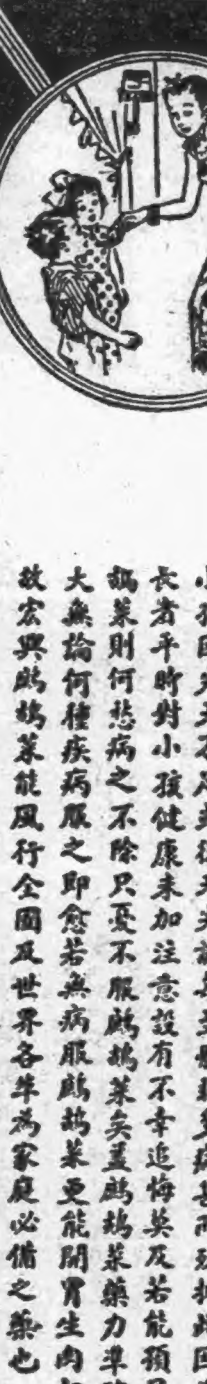 長者平時對小孩健康未加注意設有不幸追悔莫及若能預
鴣菜則何愁病之不除只憂不服鷓鴣菜矣蓋鷓鴣菜藥力準
大無論何種疾病服之即愈若無病服鷓鴣菜更能開胃生肉
故宏興鷓鴣菜能風行全國及世界各埠為家庭必備之藥也